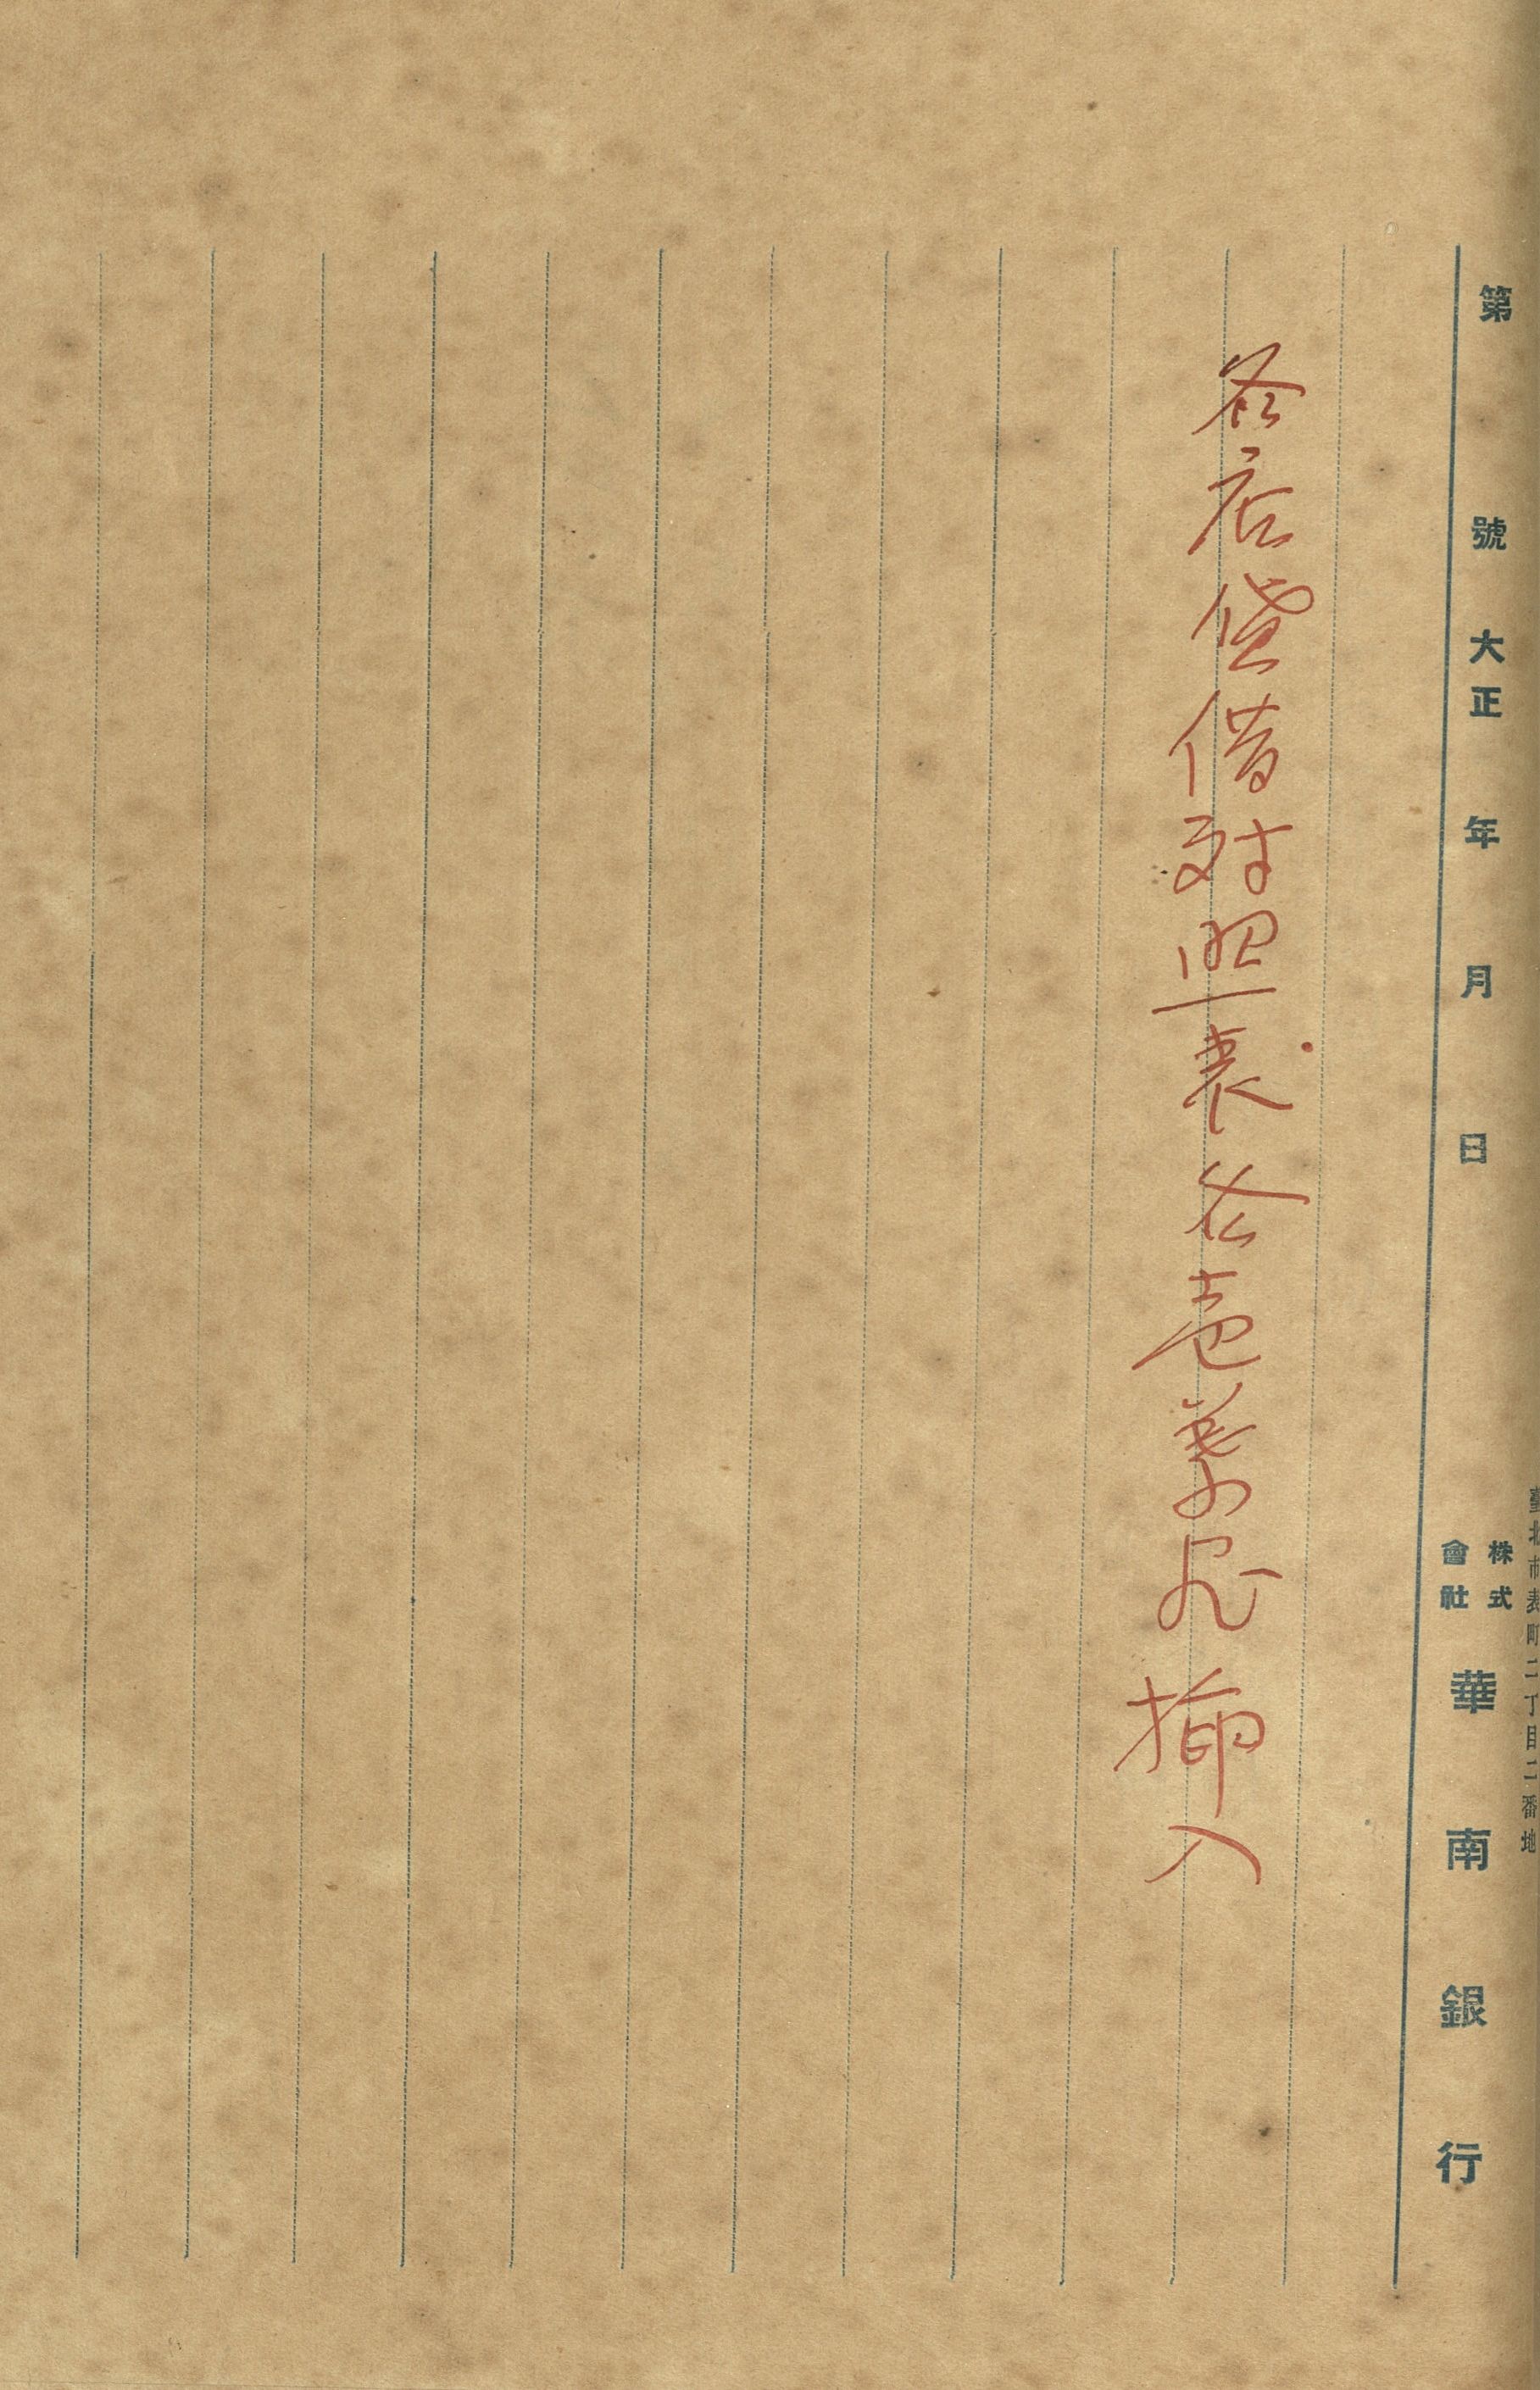 臺北市表町二丁目二番地
第 號 大正 年 月 日 株式會社 華南銀行
各店貸借対照表各壱葉宛挿入